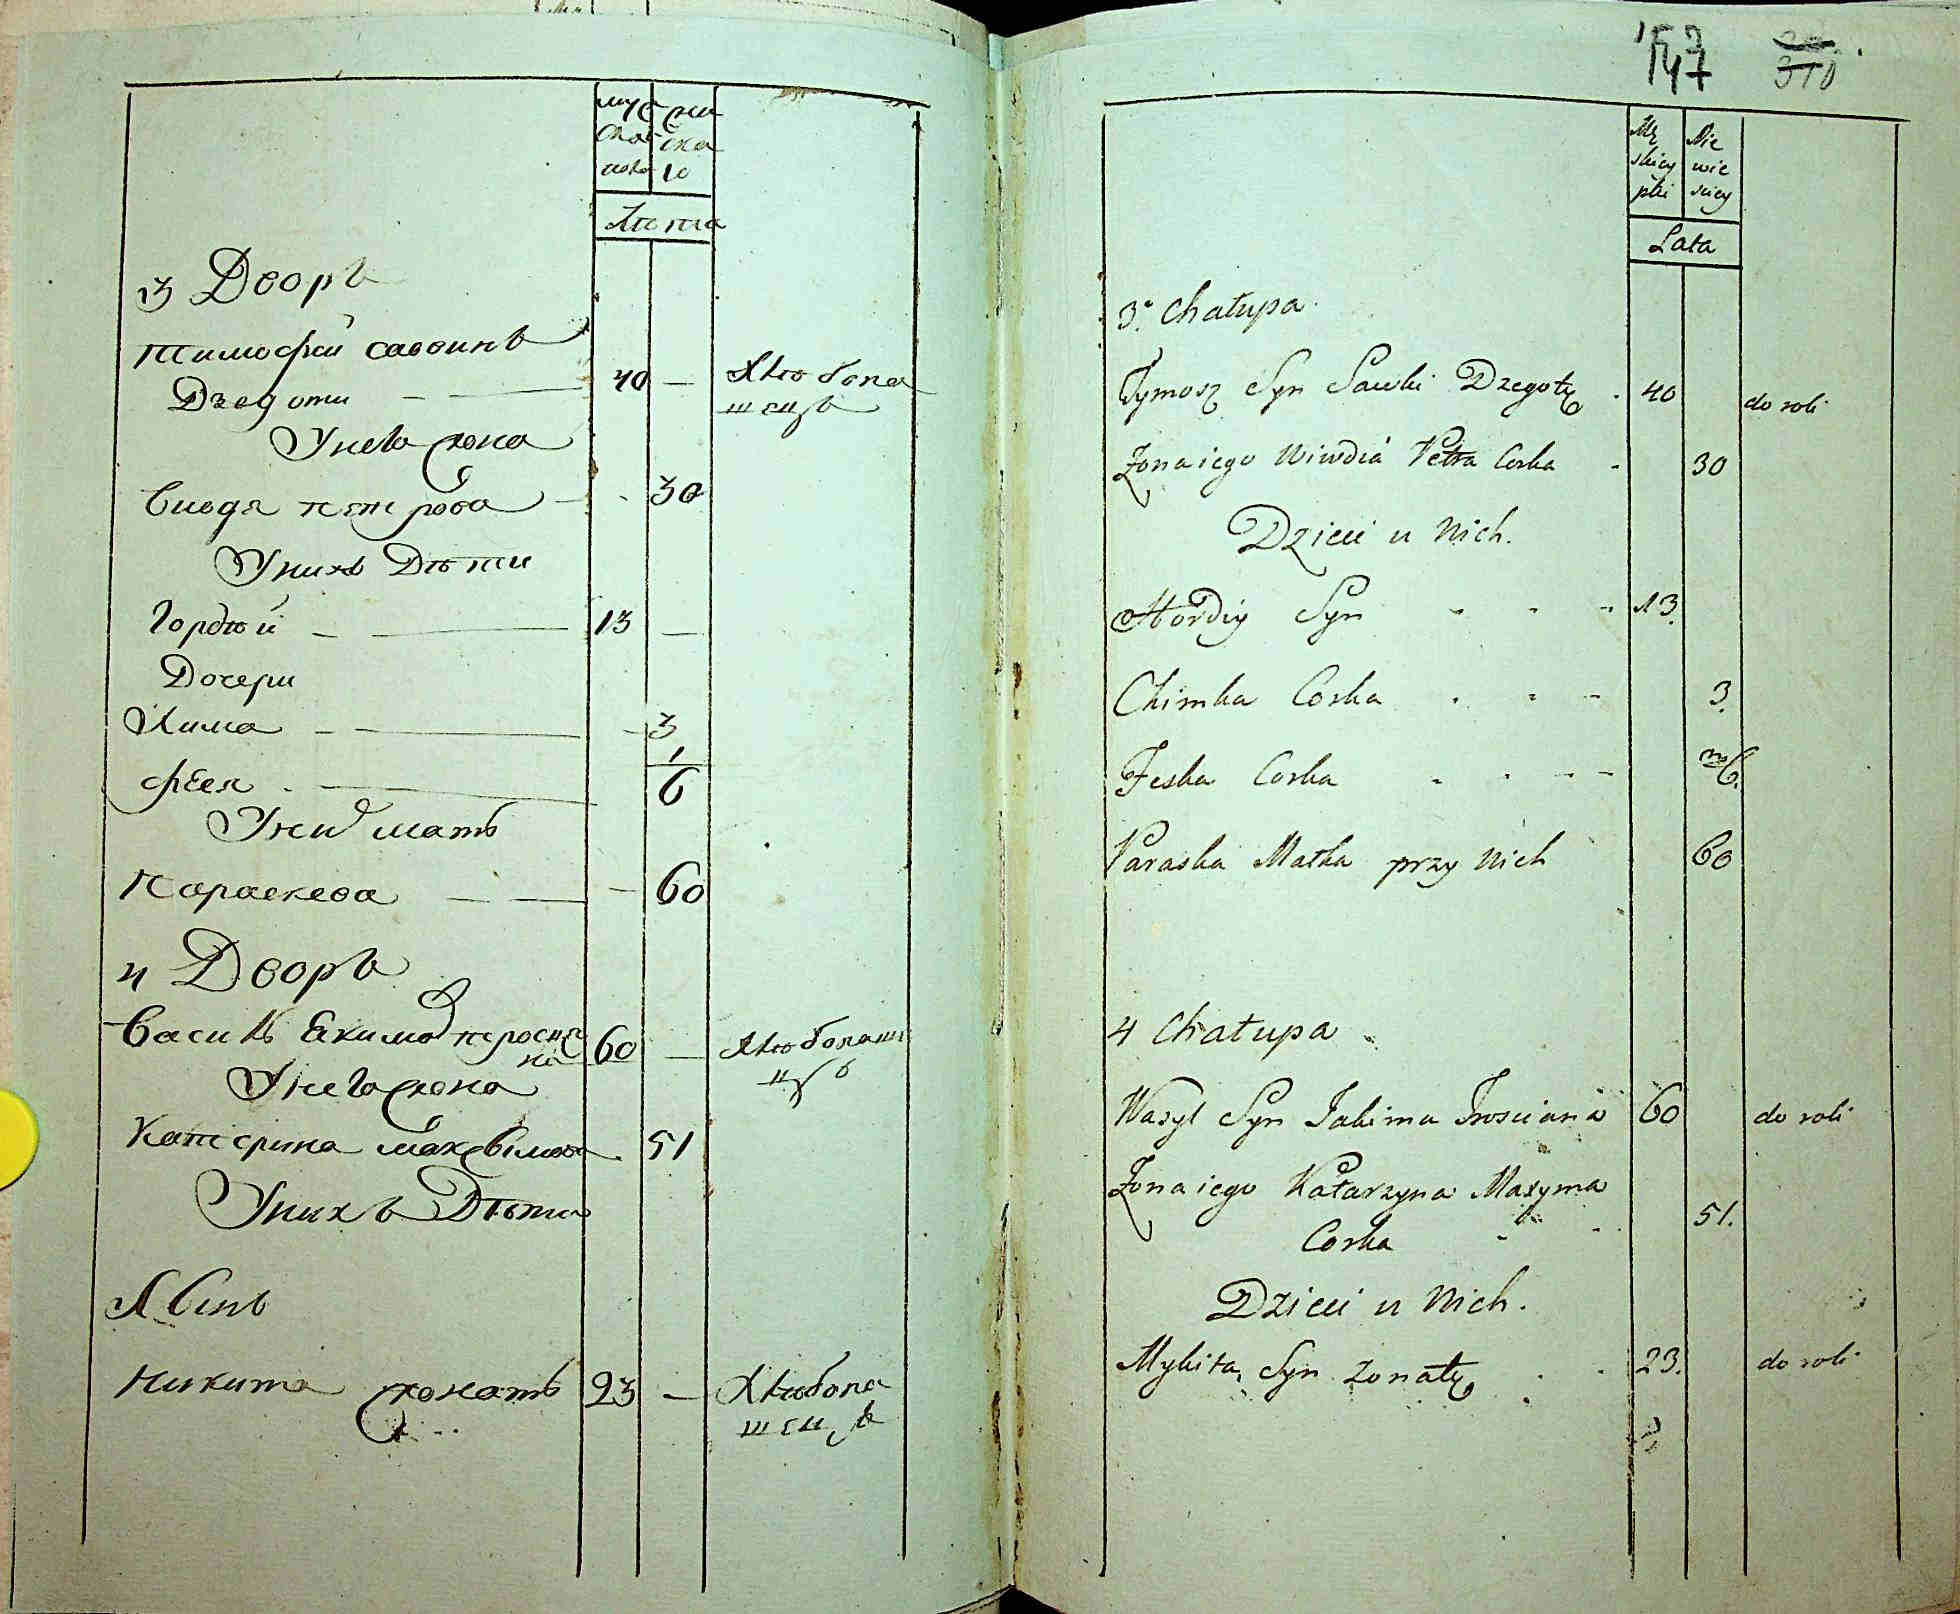 мус
ска
каго
жен
ска
го
Лѣта
3 Дворъ
Тимофей Саввинъ
Дзеготи 40 — Хлѣбопа
шецъ
У него жена
Вивдя Петрова — 30
У нихъ Дѣти
Гордѣй — 13 —
Дочери
Хима — 3
Феся — 1/6
У ни матъ
Параскева — 60
4 Дворъ
Василь Екимо Тросця
на 60 — Хлѣбопаше
цъ
У него жена
Катерина Максимова 51
У нихъ Дѣти
Сынъ
Никита жонатъ 23 — Хлѣбопа
шецъ
147
310
Mę
skiey
płci
Nie
wie
sciey
Lata
3. Chałupa
Tymosz Syn Sawki Dzegoty 40 do roli
Zona iego Wiwdia Petra Corka 30
Dzieci u Nich.
Hordiy Syn 13.
Chimka Corka 3.
Feska Corka 6.
Paraska Matka przy Nich 60
4 Chałupa
Wasyl Syn Jakima Trosciana 60 do roli
Zona iego Katarzyna Maxyma
Corka 51.
Dzieci u Nich.
Mykita Syn Zonaty 23. do roli